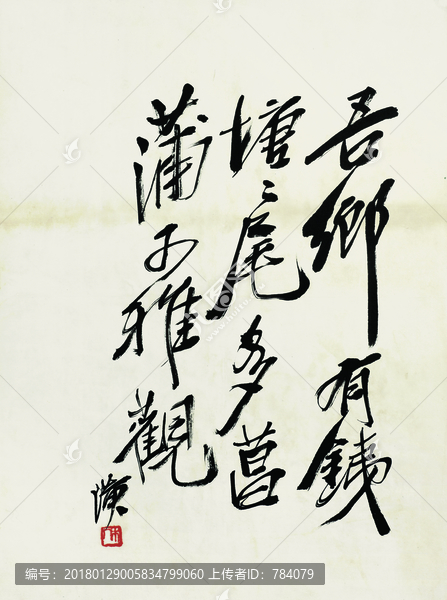 吾鄉有銕
塘〻尾多菖
蒲可雅觀
璜
编号：20180129005834799060 上传者ID：784079